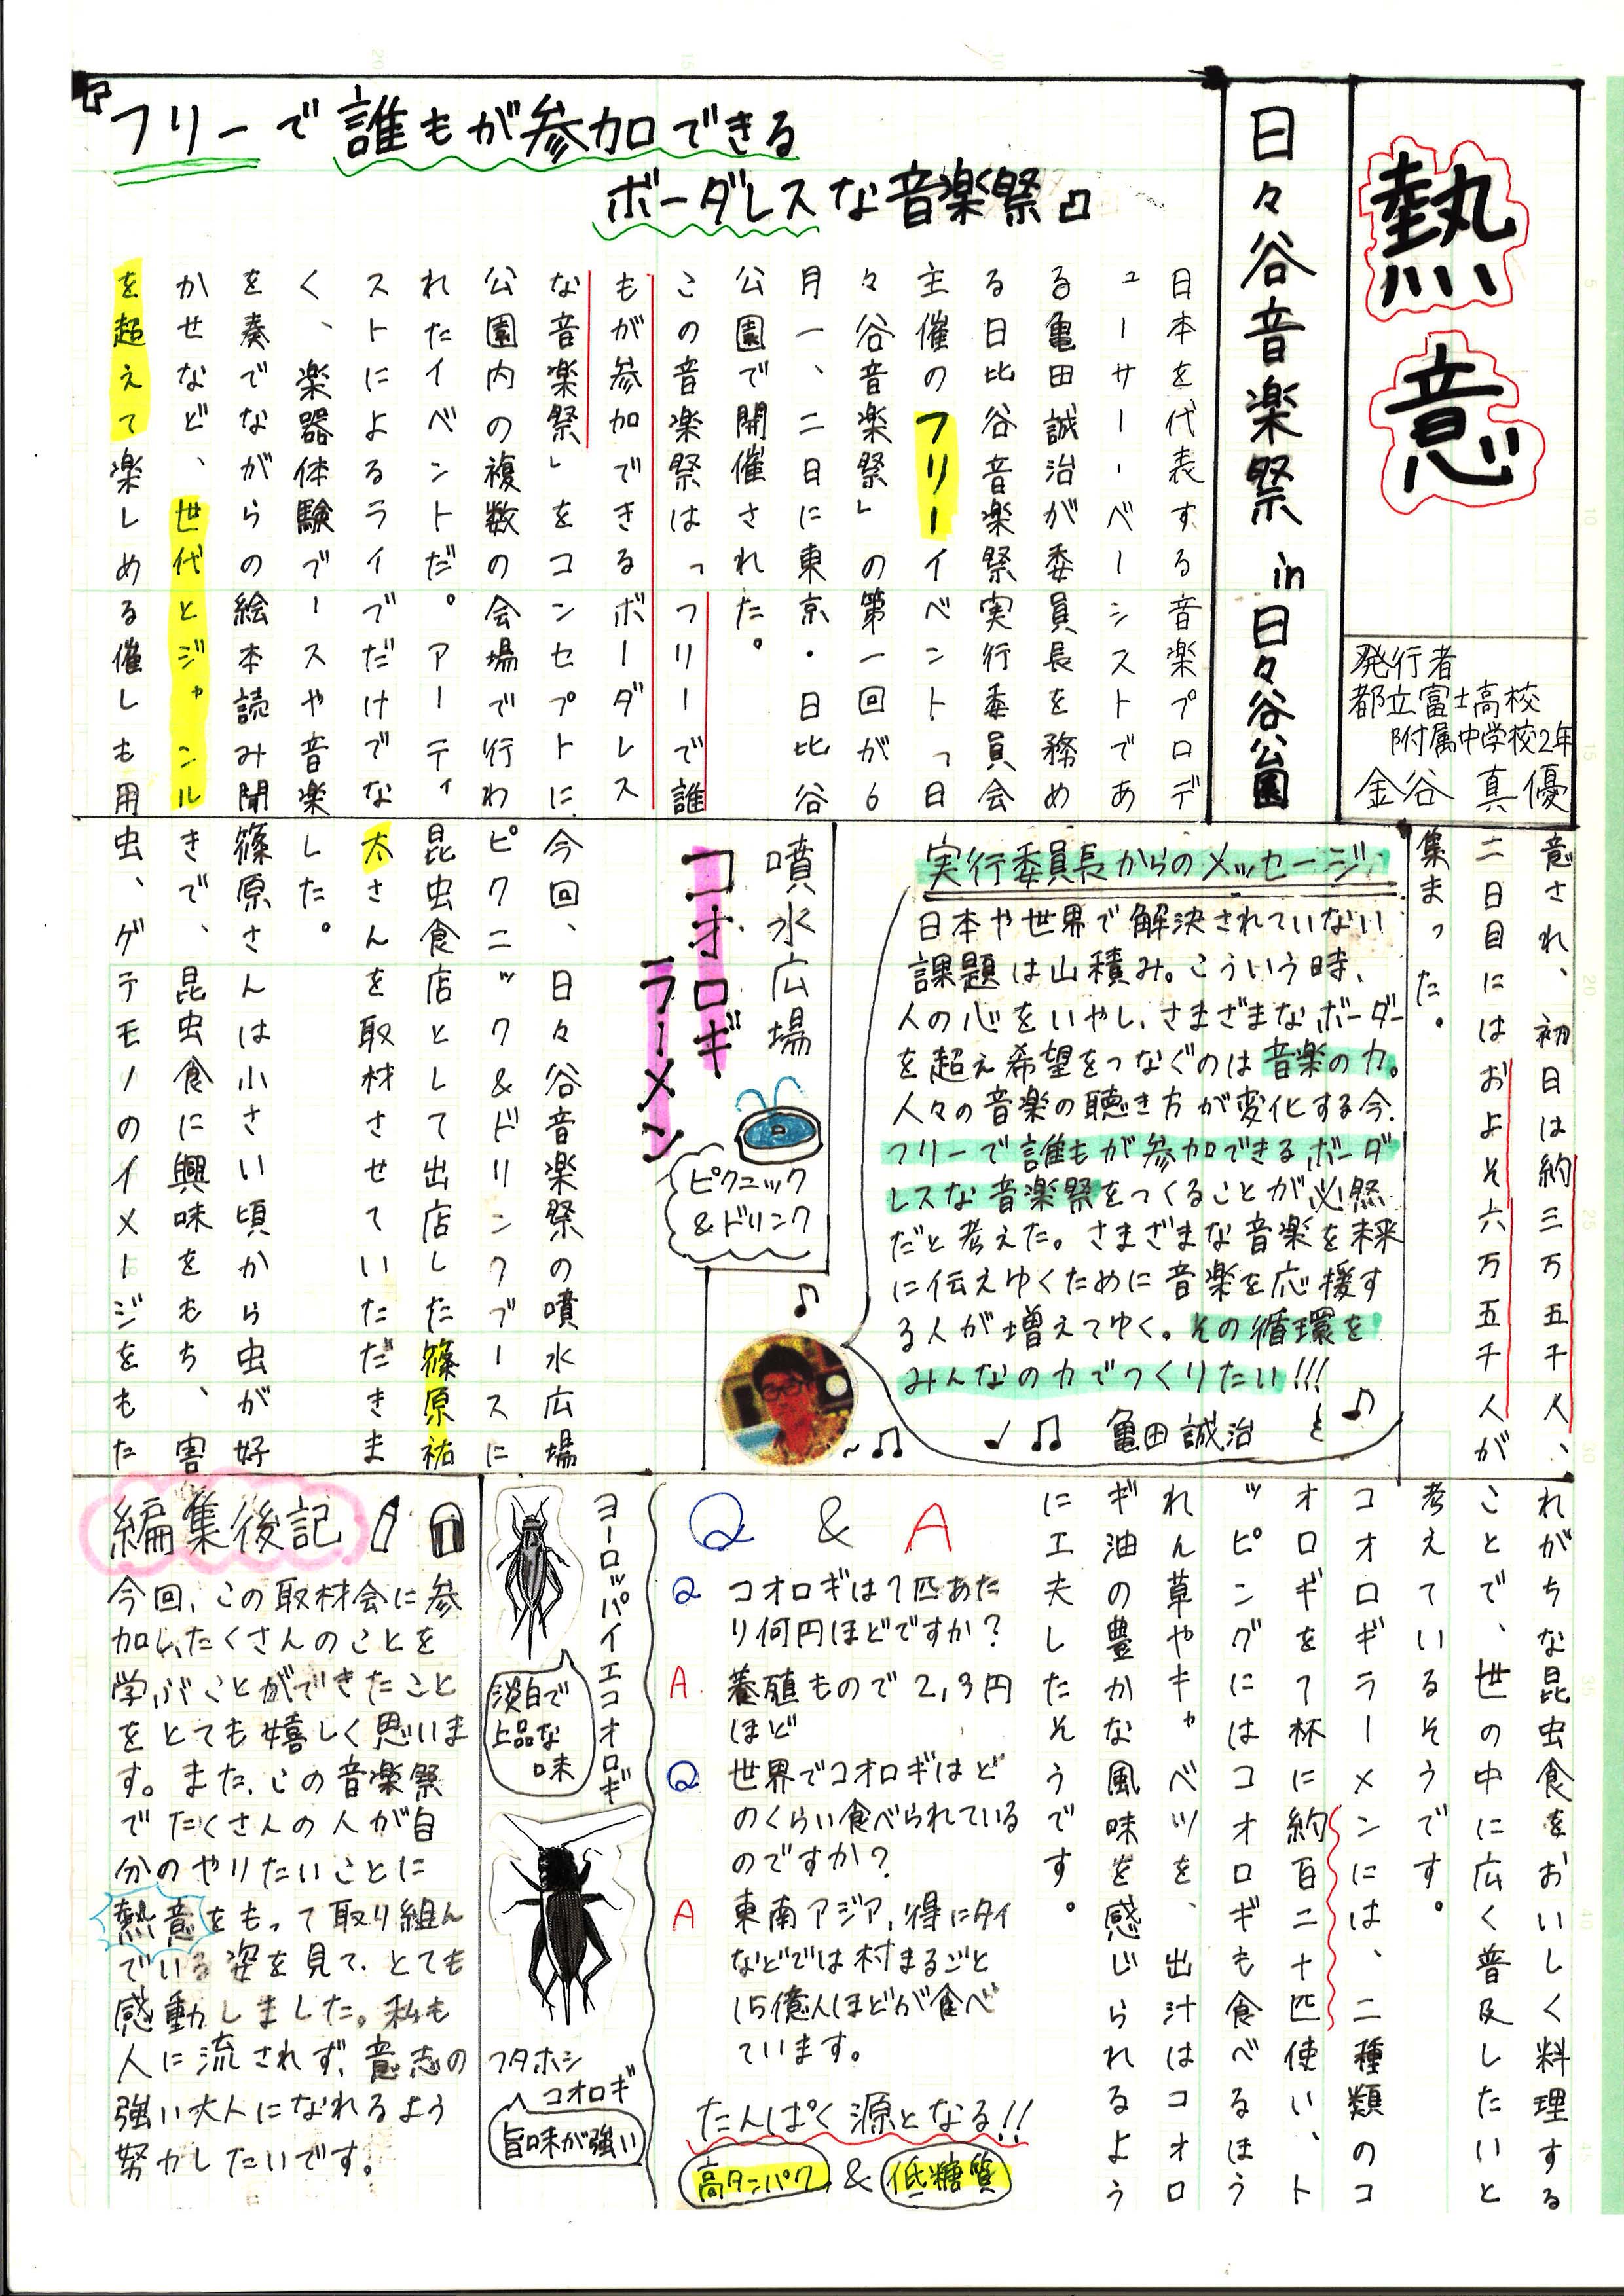 熱意
発行者
都立富士高校
附属中学校2年
金谷 真優
日々谷音楽祭 in 日々谷公園
『フリーで誰もが参加できる
ボーダレスな音楽祭』
日本を代表する音楽プロデ
ューサー・ベーシストであ
る亀田誠治が委員長を務め
る日比谷音楽祭実行委員会
主催のフリーイベント「日
々谷音楽祭」の第一回が6
月一、二日に東京・日比谷
公園で開催された。
この音楽祭は「フリーで誰
もが参加できるボーダレス
な音楽祭」をコンセプトに、
公園内の複数の会場で行わ
れたイベントだ。アーティ
ストによるライブだけでな
く、楽器体験ブースや音楽
を奏でながらの絵本読み聞
かせなど、世代とジャンル
を超えて楽しめる催しも用
意され、初日は約三万五千人、
二日目にはおよそ六万五千人が
集まった。
実行委員長からのメッセージ
日本や世界で解決されていない
課題は山積み。こういう時、
人の心をいやし、さまざまなボーダー
を超え希望をつなぐのは音楽の力。
人々の音楽の聴き方が変化する今、
フリーで誰もが参加できるボーダ
レスな音楽祭をつくることが必然
だと考えた。さまざまな音楽を未来
に伝えゆくために音楽を応援す
る人が増えてゆく。その循環を
みんなの力でつくりたい!!!
亀田誠治
噴水広場
コオロギ
ラーメン
ピクニック
&ドリンク
今回、日々谷音楽祭の噴水広場
ピクニック&ドリンクブースに
昆虫食店として出店した篠原祐
太さんを取材させていただきま
した。
篠原さんは小さい頃から虫が好
きで、昆虫食に興味をもち、害
虫、ゲテモノのイメージをもた
れがちな昆虫食をおいしく料理する
ことで、世の中に広く普及したいと
考えているそうです。
コオロギラーメンには、二種類のコ
オロギを1杯に約百二十匹使い、ト
ッピングにはコオロギも食べるほう
れん草やキャベツを、出汁はコオロ
ギ油の豊かな風味を感じられるよう
に工夫したそうです。
Q & A
Q コオロギは1匹あた
り何円ほどですか?
A. 養殖もので2,3円
ほど
Q 世界でコオロギはど
のくらい食べられている
のですか?
A 東南アジア、得にタイ
などでは村まるごと
15億人ほどが食べ
ています。
たんぱく源となる!!
高タンパク & 低糖質
ヨーロッパイエコオロギ
淡白で
上品な
味
フタホシ
コオロギ
旨味が強い
編集後記
今回、この取材会に参
加し、たくさんのことを
学ぶことができたこと
をとても嬉しく思いま
す。また、この音楽祭
でたくさんの人が自
分のやりたいことに
熱意をもって取り組ん
でいる姿を見て、とても
感動しました。私も
人に流されず、意志の
強い大人になれるよう
努力したいです。